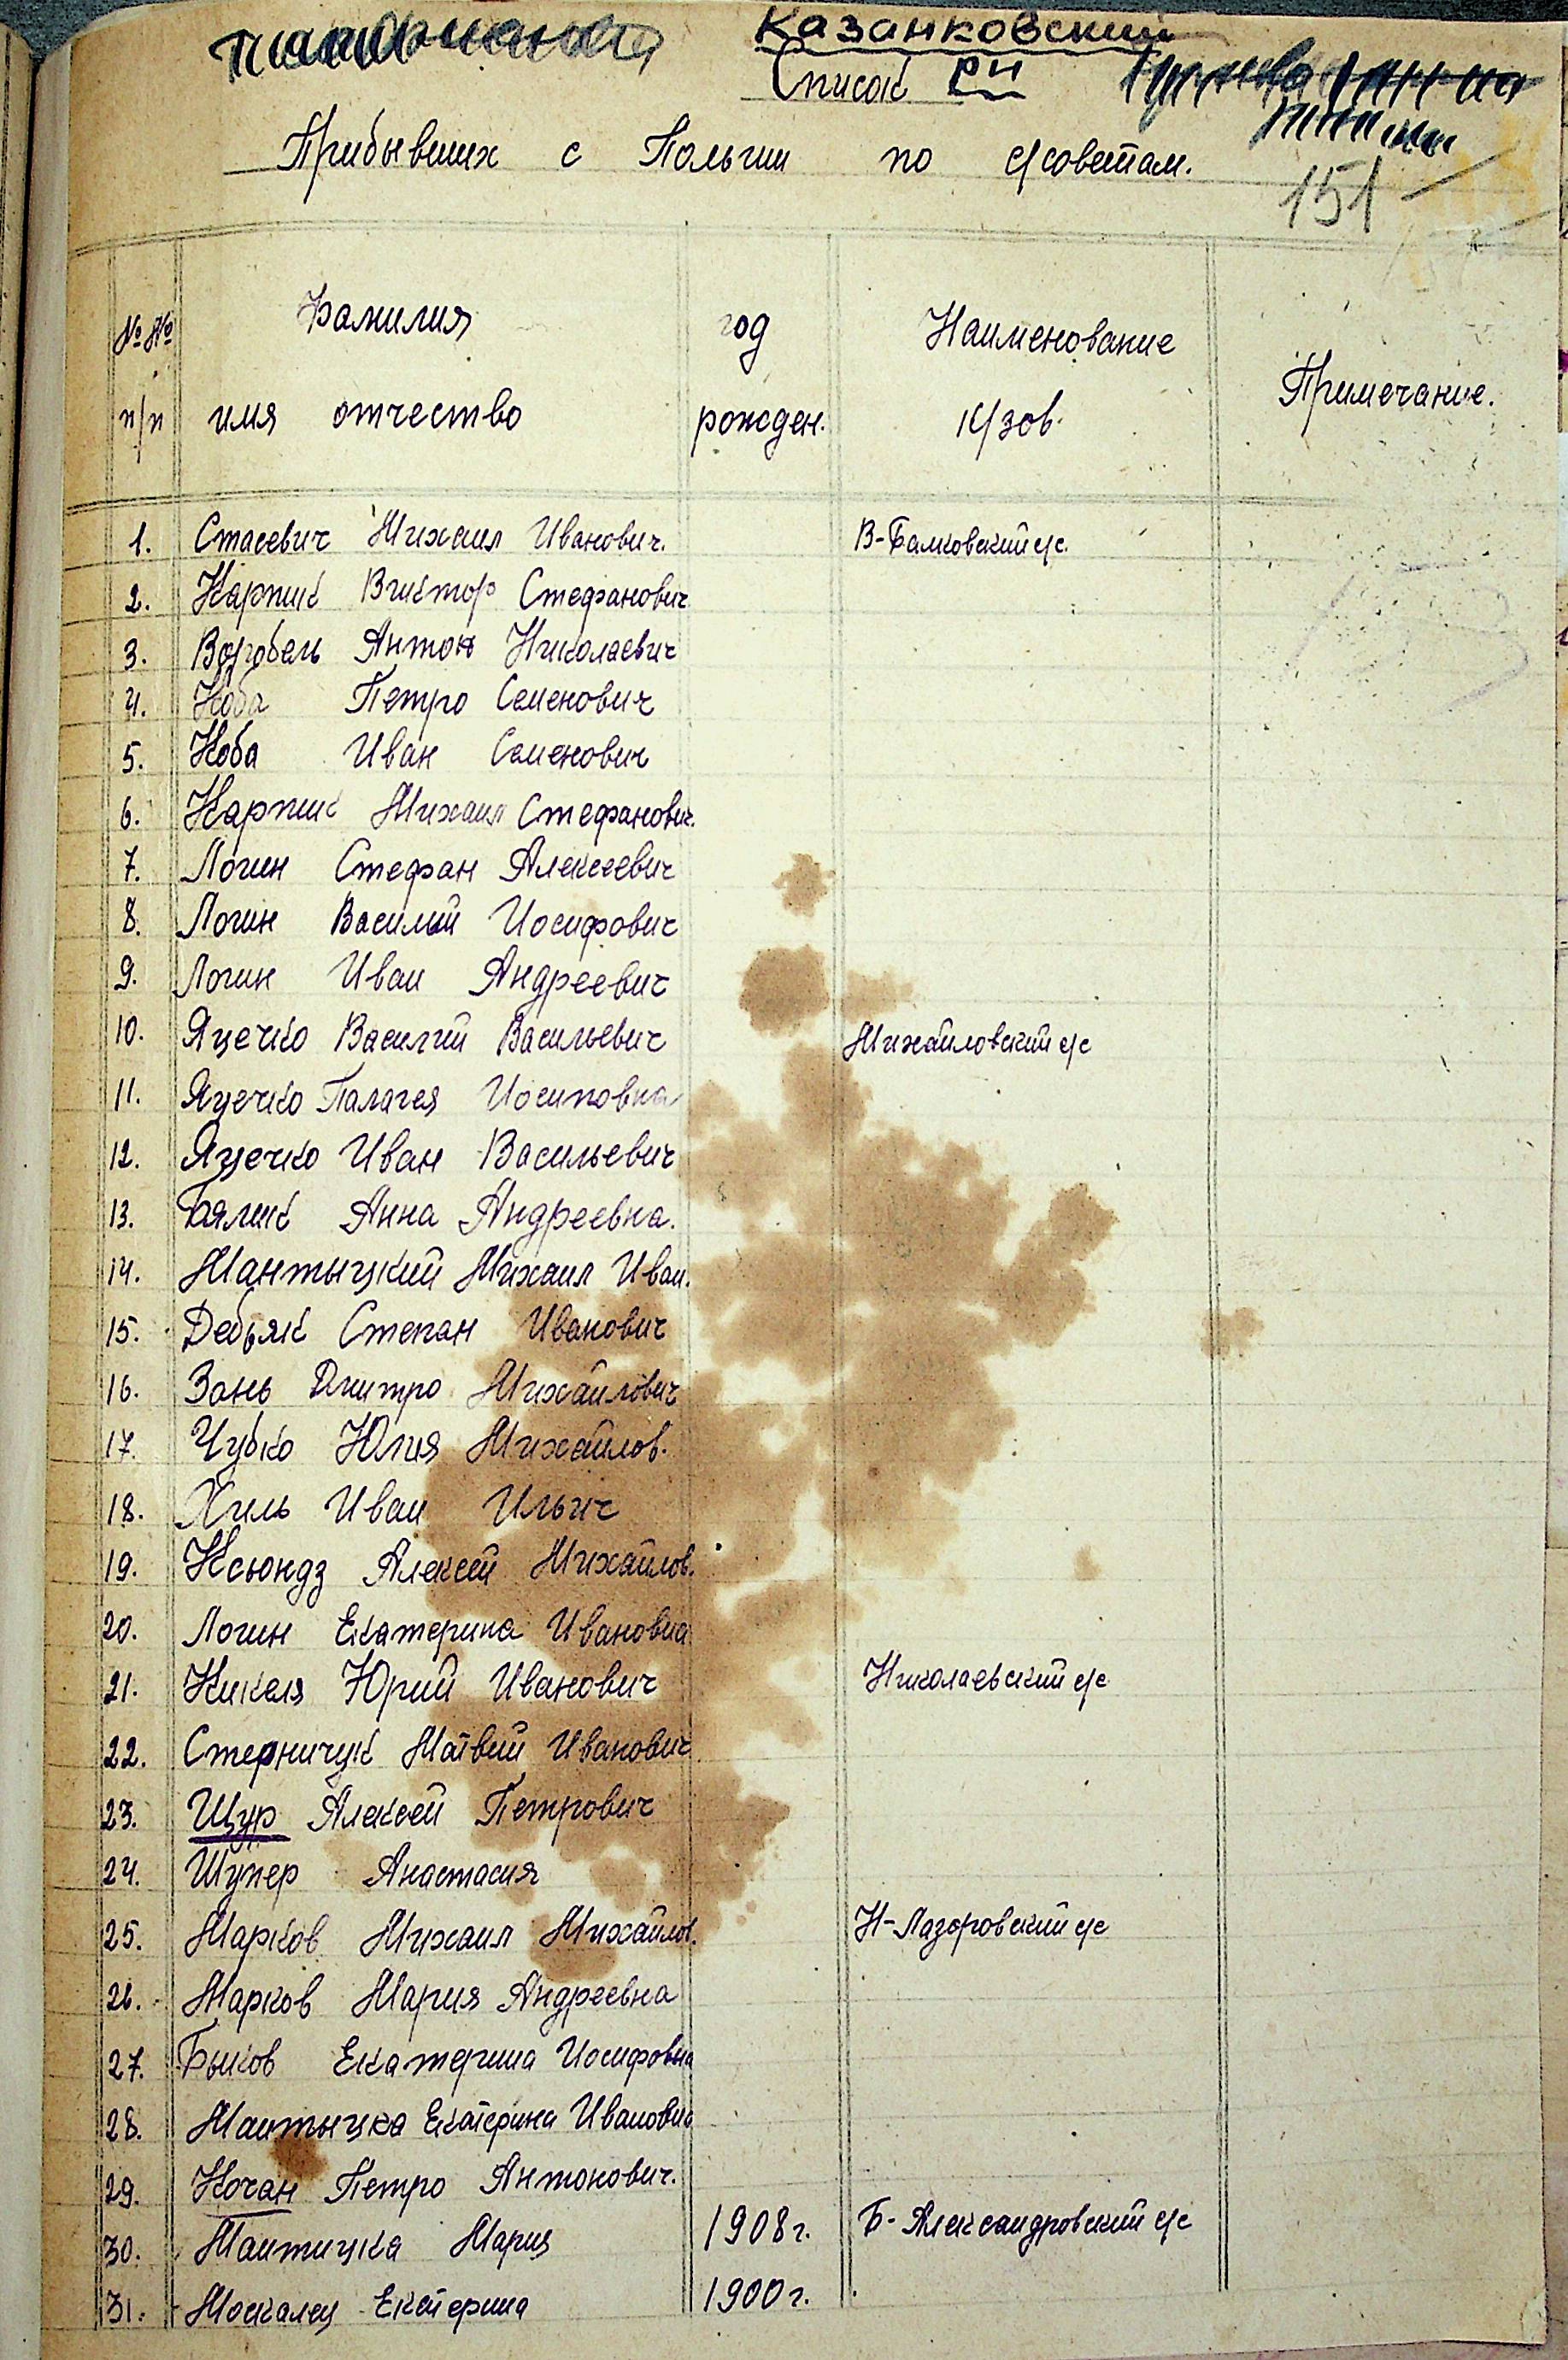 Казанковский
Список рн
Прибывших с Польши по с/советам.
151
№№ п/п
Фамилия имя отчество
год рожден.
Наименование к/зов.
Примечание.
1. Стасевич Михаил Иванович. В-Балковский с/с.
2. Карпик Виктор Стефанович
3. Воробель Антон Николаевич
4. Коба Петро Семенович
5. Коба Иван Семенович
6. Карпик Михаил Стефанович.
7. Логин Стефан Алексеевич
8. Логин Василий Иосифович
9. Логин Иван Андреевич
10. Яцечко Василий Васильевич Михайловский с/с
11. Яцечко Палагея Иосиповна
12. Яцечко Иван Васильевич
13. Бялик Анна Андреевна.
14. Мантыцкий Михаил Иван.
15. Дебьяк Степан Иванович
16. Зань Дмитро Михайлович
17. Чубко Юлия Михайлов.
18. Хиль Иван Ильич
19. Ксюндз Алексей Михайлов.
20. Логин Екатерина Ивановна
21. Кикеля Юрий Иванович Николаевский с/с
22. Стерничук Матвий Иванович
23. Щур Алексей Петрович
24. Шупер Анастасия
25. Марков Михаил Михайлов. Н-Лазоровский с/с
26. Марков Мария Андреевна
27. Быков Екатерина Иосифовна
28. Мантыцка Екатерина Ивановна
29. Кочан Петро Антонович.
30. Мантицка Мария 1908 г. Б-Александровский с/с
31. Москалец Екатерина 1900 г.